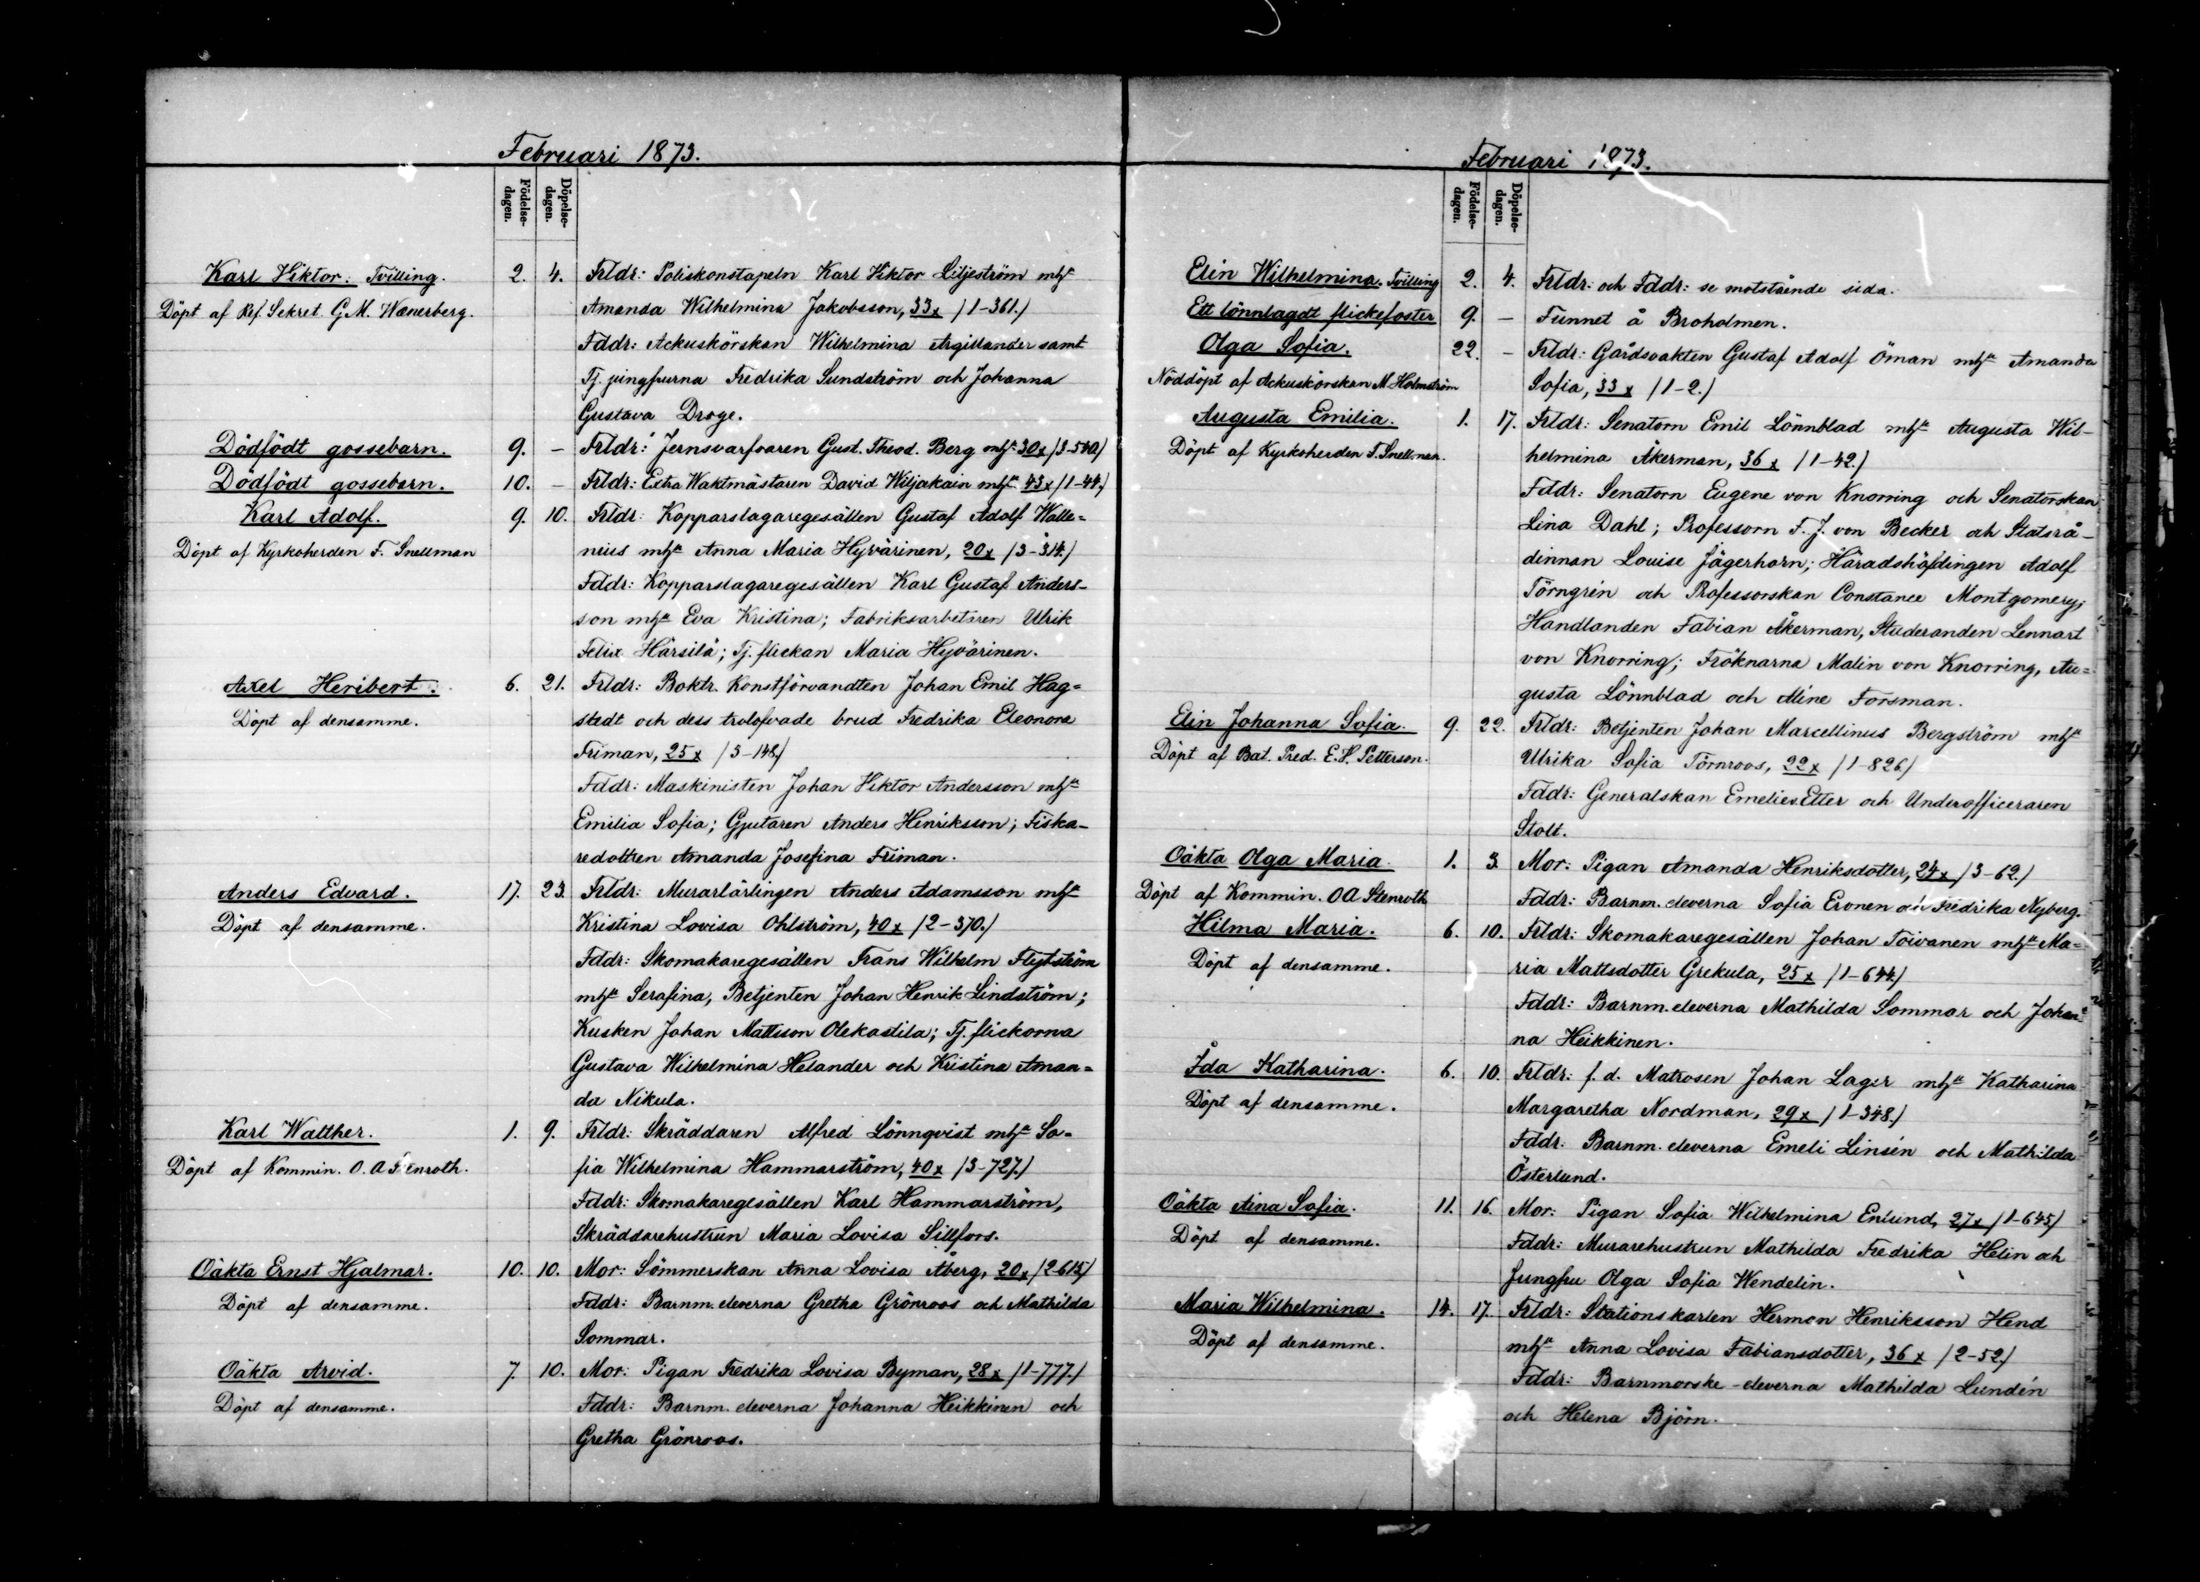 Februari 1873.
Födelse-dagen.
Döpelse-dagen.
Karl Viktor. Tvilling. 2. 4. Frldr: Poliskonstapeln Karl Viktor Liljeström mhja
Döpt af Ref. Sekret. G.M. Wænerberg. Amanda Wilhelmina Jakobsson, 33x /1-361./
Fddr: Ackuskörskan Wilhelmina Argillander samt
Tj. jungfrurna Fredrika Sundström och Johanna
Gustava Droge.
Dödfödt gossebarn. 9. – Frldr: Jernsvarfvaren Gust. Theod. Berg mhja 30x /3-540/
Dödfödt gossebarn. 10. – Frldr: Extra Waktmästaren David Wiljakain mhja 43x /1-44./
Karl Adolf. 9. 10. Frldr: Kopparslagaregesällen Gustaf Adolf Walle-
Döpt af Kyrkoherden F. Snellman nius mhja Anna Maria Hyvärinen, 20x /3-314./
Fddr: Kopparslagaregesällen Karl Gustaf Anders-
son mhja Eva Kristina; Fabriksarbetaren Ulrik
Felix Härsilä; Tj. flickan Maria Hyvärinen.
Axel Heribert. 6. 21. Frldr: Boktr. Konstförvandten Johan Emil Hag-
Döpt af densamme. stedt och dess trolofvade brud Fredrika Eleonora
Friman, 25x /3-148/
Fddr: Maskinisten Johan Viktor Andersson mhja
Emilia Sofia; Gjutaren Anders Henriksson; Fiska-
redottren Amanda Josefina Friman.
Anders Edvard. 17. 23. Frldr: Murarlärlingen Anders Adamsson mhja
Döpt af densamme. Kristina Lovisa Ohlström, 40x /2-370./
Fddr: Skomakaregesällen Frans Wilhelm Flytström
mhja Serafina, Betjenten Johan Henrik Lindström;
Kusken Johan Mattsson Olekastila; Tj. flickorna
Gustava Wilhelmina Helander och Kristina Aman-
da Nikula.
Karl Walther. 1. 9. Frldr: Skräddaren Alfred Lönnqvist mhja So-
Döpt af Kommin. O.A Stenroth. fia Wilhelmina Hammarström, 40x /3-727./
Fddr: Skomakaregesällen Karl Hammarström,
Skräddarehustrun Maria Lovisa Sillfors.
Oäkta Ernst Hjalmar. 10. 10. Mor: Sömmerskan Anna Lovisa Åberg, 20x /2-615/
Döpt af densamme. Fddr: Barnm. eleverna Gretha Grönroos och Mathilda
Sommar.
Oäkta Arvid. 7. 10. Mor: Pigan Fredrika Lovisa Byman, 28x /1-777./
Döpt af densamme. Fddr: Barnm. eleverna Johanna Heikkinen och
Gretha Grönroos.
Februari 1873.
Födelse-dagen.
Döpelse-dagen.
Elin Wilhelmina. Tvilling 2. 4. Frldr: och Fddr: se motstående sida.
Ett lönnlagdt flickefoster 9. – Funnet å Broholmen.
Olga Sofia. 22. – Frldr: Gårdsvakten Gustaf Adolf Öman mhja Amanda
Nöddöpt af Ackuskörskan M. Holmström Sofia, 33x /1-2./
Augusta Emilia. 1. 17. Frldr: Senatorn Emil Lönnblad mhja Augusta Wil-
Döpt af Kyrkoherden F. Snellman. helmina Åkerman, 36x /1-42./
Fddr: Senatorn Eugene von Knorring och Senatorskan
Lina Dahl; Professorn F. J. von Becker och Statsrå-
dinnan Louise Jägerhorn; Häradshöfdingen Adolf
Törngrén och Professorskan Constance Montgomery;
Handlanden Fabian Åkerman, Studeranden Lennart
von Knorring; Fröknarna Malin von Knorring, Au-
gusta Lönnblad och Mine Forsman.
Elin Johanna Sofia. 9. 22. Frldr: Betjenten Johan Marcellinus Bergström mhja
Döpt af Bat. Pred. E.V. Petterson. Ulrika Sofia Törnroos, 22x /1-826./
Fddr: Generalskan Emelie v. Etter och Underofficeraren
Stolt.
Oäkta Olga Maria. 1. 3. Mor: Pigan Amanda Henriksdotter, 24x /3-62./
Döpt af Kommin. O A Stenroth Fddr: Barnm. eleverna Sofia Eronen och Fredrika Nyberg.
Hilma Maria. 6. 10. Frldr: Skomakaregesällen Johan Toivanen mhja Ma-
Döpt af densamme. ria Mattsdotter Grekula, 25x /1-644./
Fddr: Barnm. eleverna Mathilda Sommar och Johan-
na Heikkinen.
Ida Katharina. 6. 10. Frldr: f.d. Matrosen Johan Lager mhja Katharina
Döpt af densamme. Margaretha Nordman, 29x /1-348./
Fddr: Barnm. eleverna Emeli Linsén och Mathilda
Österlund.
Oäkta Aina Sofia. 11. 16. Mor: Pigan Sofia Wilhelmina Enlund, 27x /1-645/
Döpt af densamme. Fddr: Murarehustrun Mathilda Fredrika Helin och
Jungfru Olga Sofia Wendelin.
Maria Wilhelmina. 14. 17. Frldr: Stationskarlen Herman Henriksson Hend
Döpt af densamme. mhja Anna Lovisa Fabiansdotter, 36x /2-52./
Fddr: Barnmorske-eleverna Mathilda Lundén
och Helena Björn.